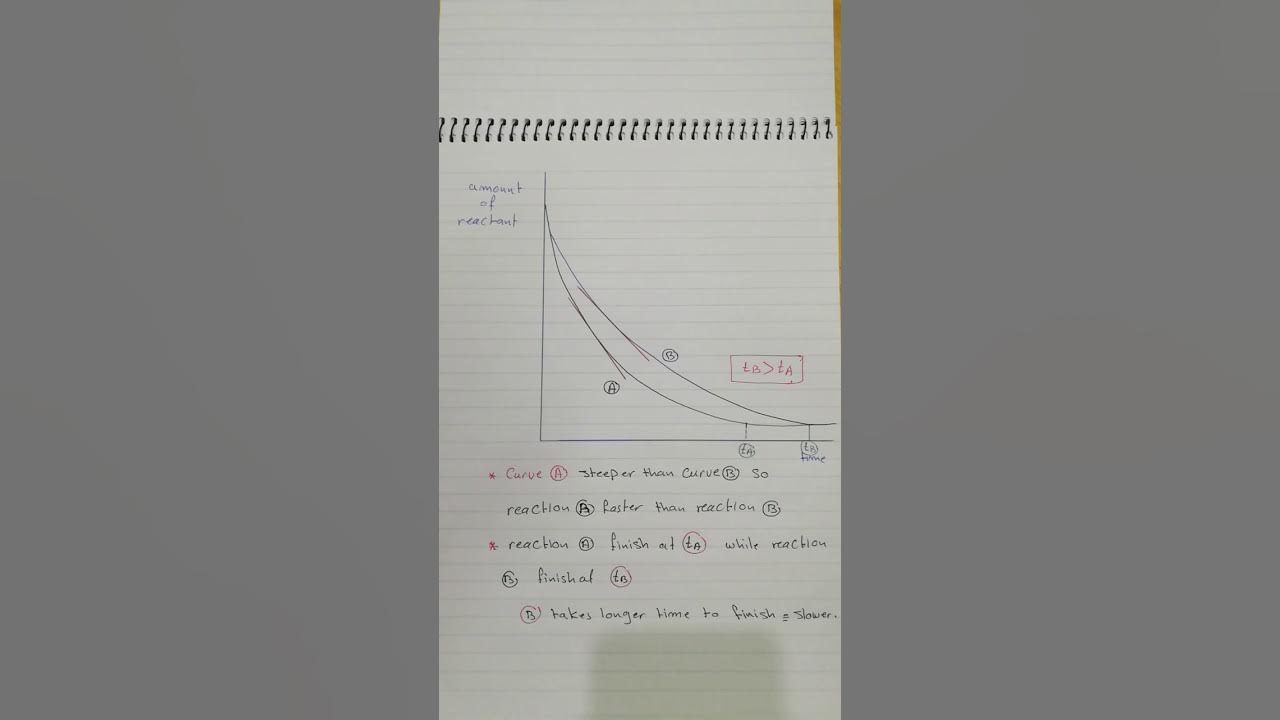 amount
of
reactant
B
tB > tA
A
tA
tB
time
* Curve A steeper than curve B so
reaction faster than reaction B
* reaction A finish at tA while reaction
B finish at tB
B takes longer time to finish = slower.